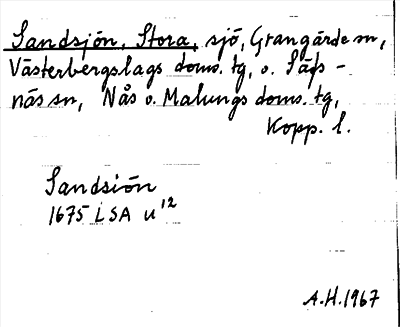 Sandsjön, Stora, sjö, Grangärde sn,
Västerbergslags doms. tg, o. Säfs-
näs sn, Nås o. Malungs doms. tg,
Kopp. l.
Sandsiön
1675 LSA U¹²
A.H. 1967